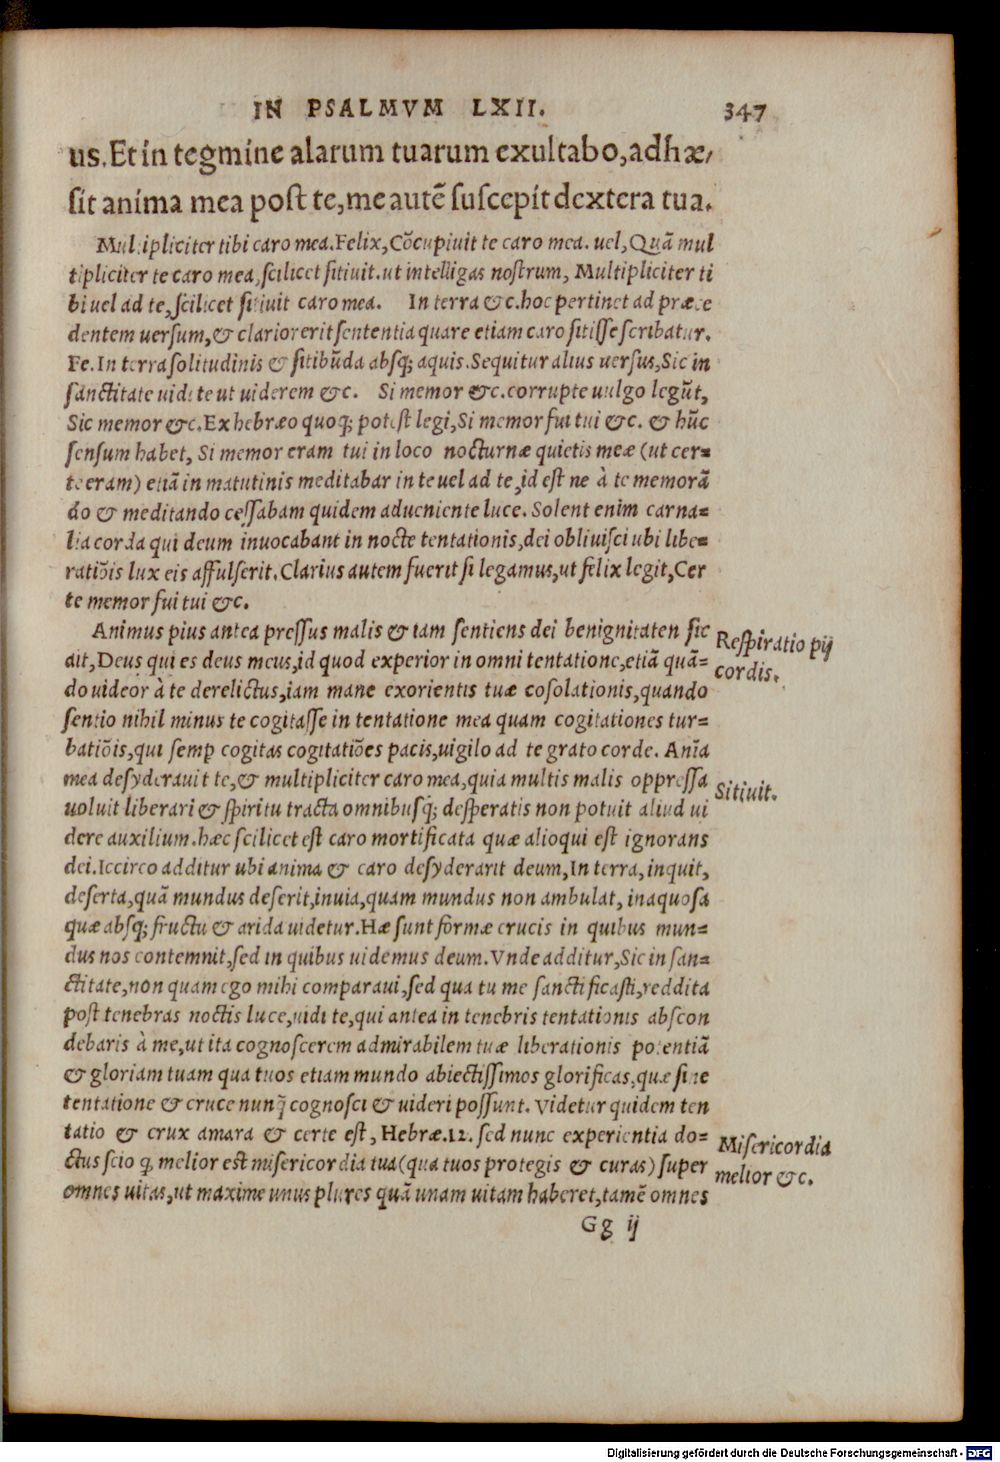 IN PSALMVM LXII. 347
us. Et in tegmine alarum tuarum exultabo, adhæ/
sit anima mea post te, me autē suscepit dextera tua.
Multipliciter tibi caro mea. Felix, Cōcupiuit te caro mea. uel, Quā mul
tipliciter te caro mea, scilicet sitiuit. ut intelligas nostrum, Multipliciter ti
bi uel ad te, scilicet sitiuit caro mea. In terra &c. hoc pertinet ad præce
dentem uersum, & clarior erit sententia quare etiam caro sitisse scribatur.
Fe. In terra solitudinis & sitibūda absq; aquis. Sequitur alius uersus, Sic in
sanctitate uidi te ut uiderem &c. Si memor &c. corrupte uulgo legūt,
Sic memor &c. Ex hebræo quoq; potest legi, Si memor fui tui &c. & hūc
sensum habet, Si memor eram tui in loco nocturnæ quietis meæ (ut cer=
te eram) etiā in matutinis meditabar in te uel ad te, id est ne à te memorā
do & meditando cessabam quidem adueniente luce. Solent enim carna=
lia corda qui deum inuocabant in nocte tentationis, dei obliuisci ubi libe=
ratiōis lux eis affulserit. Clarius autem fuerit si legamus, ut felix legit, Cer
te memor fui tui &c.
Animus pius antea pressus malis & iam sentiens dei benignitaten sic
ait, Deus qui es deus meus, id quod experior in omni tentatione, etiā quā=
do uideor à te derelictus, iam mane exorientis tuæ cōsolationis, quando
sentio nihil minus te cogitasse in tentatione mea quam cogitationes tur=
batiōis, qui semp cogitas cogitatiōes pacis, uigilo ad te grato corde. Anīa
mea desyderauit te, & multipliciter caro mea, quia multis malis oppressa
uoluit liberari & spiritu tracta omnibusq; desperatis non potuit aliud ui
dere auxilium. hæc scilicet est caro mortificata quæ alioqui est ignorans
dei. Iccirco additur ubi anima & caro desyderarit deum, In terra, inquit,
deserta, quā mundus deserit, inuia, quam mundus non ambulat, inaquosa
quæ absq; fructu & arida uidetur. Hæ sunt formæ crucis in quibus mun=
dus nos contemnit, sed in quibus uidemus deum. Vnde additur, Sic in san=
ctitate, non quam ego mihi comparaui, sed qua tu me sanctificasti, reddita
post tenebras noctis luce, uidi te, qui antea in tenebris tentationis abscon
debaris à me, ut ita cognoscerem admirabilem tuæ liberationis potentiā
& gloriam tuam qua tuos etiam mundo abiectissimos glorificas, quæ sine
tentatione & cruce nunq̃ cognosci & uideri possunt. Videtur quidem ten
tatio & crux amara & certe est, Hebræ. 12. sed nunc experientia do=
ctus scio q, melior est misericordia tua (qua tuos protegis & curas) super
omnes uitas, ut maxime unus plures quā unam uitam haberet, tamē omnes
Respiratio pij
cordis.
Sitiuit.
Misericordia
melior &c.
Gg ij
Digitalisierung gefördert durch die Deutsche Forschungsgemeinschaft - DFG